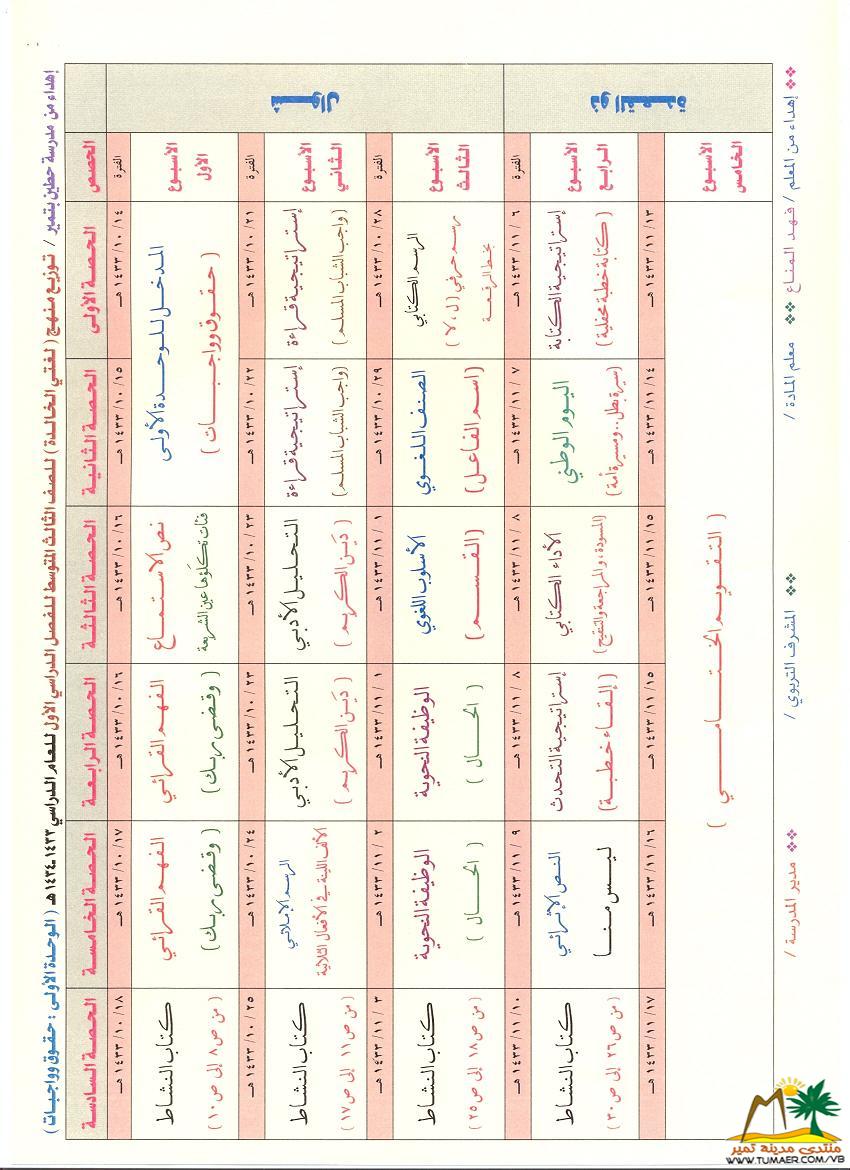 إهداء من مدرسة حطين بتمير / توزيع منهج ( لغتي الخالدة ) للصف الثالث المتوسط للفصل الدراسي الأول للعام الدراسي ١٤٣٣-١٤٣٤ هـ ( الوحدة الأولى : حقوق وواجبات )
شوال
ذو القعدة
الحصص
الحصة الأولى
الحصة الثانية
الحصة الثالثة
الحصة الرابعة
الحصة الخامسة
الحصة السادسة
الفترة
١٤٣٣/١٠/١٤ هـ
١٤٣٣/١٠/١٥ هـ
١٤٣٣/١٠/١٦ هـ
١٤٣٣/١٠/١٦ هـ
١٤٣٣/١٠/١٧ هـ
١٤٣٣/١٠/١٨ هـ
الأسبوع
الأول
المدخل للوحدة الأولى
( حقوق وواجبات )
نص الاستماع
فئات تكلؤها عين الشريعة
الفهم القرائي
( وقضى ربك )
الفهم القرائي
( وقضى ربك )
كتاب النشاط
( من ص ٨ إلى ص ١٠ )
الفترة
١٤٣٣/١٠/٢١ هـ
١٤٣٣/١٠/٢٢ هـ
١٤٣٣/١٠/٢٣ هـ
١٤٣٣/١٠/٢٣ هـ
١٤٣٣/١٠/٢٤ هـ
١٤٣٣/١٠/٢٥ هـ
الأسبوع
الثاني
إستراتيجية قراءة
( واجب الشباب المسلم )
إستراتيجية قراءة
( واجب الشباب المسلم )
التحليل الأدبي
( دَين الكريم )
التحليل الأدبي
( دَين الكريم )
الرسم الإملائي
الألف اللينة في الأفعال الثلاثية
كتاب النشاط
( من ص ١١ إلى ص ١٧ )
الفترة
١٤٣٣/١٠/٢٨ هـ
١٤٣٣/١٠/٢٩ هـ
١٤٣٣/١١/١ هـ
١٤٣٣/١١/١ هـ
١٤٣٣/١١/٢ هـ
١٤٣٣/١١/٣ هـ
الأسبوع
الثالث
الرسم الكتابي
رسم حرفي ( ل ، لا )
بخط الرقعة
الصنف اللغوي
( اسم الفاعل )
الأسلوب اللغوي
( القسم )
الوظيفة النحوية
( الحال )
الوظيفة النحوية
( الحال )
كتاب النشاط
( من ص ١٨ إلى ص ٢٥ )
الفترة
١٤٣٣/١١/٦ هـ
١٤٣٣/١١/٧ هـ
١٤٣٣/١١/٨ هـ
١٤٣٣/١١/٨ هـ
١٤٣٣/١١/٩ هـ
١٤٣٣/١١/١٠ هـ
الأسبوع
الرابع
إستراتيجية الكتابة
( كتابة خطبة محفلية )
اليوم الوطني
( سيرة بطل .. ومسيرة أمة )
الأداء الكتابي
( المسودة ، والمراجعة والتنقيح )
إستراتيجية التحدث
( إلقاء خطبة )
النص الإثرائي
ليس منا
كتاب النشاط
( من ص ٢٦ إلى ص ٣٠ )
١٤٣٣/١١/١٣ هـ
١٤٣٣/١١/١٤ هـ
١٤٣٣/١١/١٥ هـ
١٤٣٣/١١/١٥ هـ
١٤٣٣/١١/١٦ هـ
١٤٣٣/١١/١٧ هـ
الأسبوع
الخامس
( التقويم الختامي )
إهداء من المعلم / فهد المناع
معلم المادة /
المشرف التربوي /
مدير المدرسة /
منتدى مدينة تمير
WWW.TUMAER.COM/VB